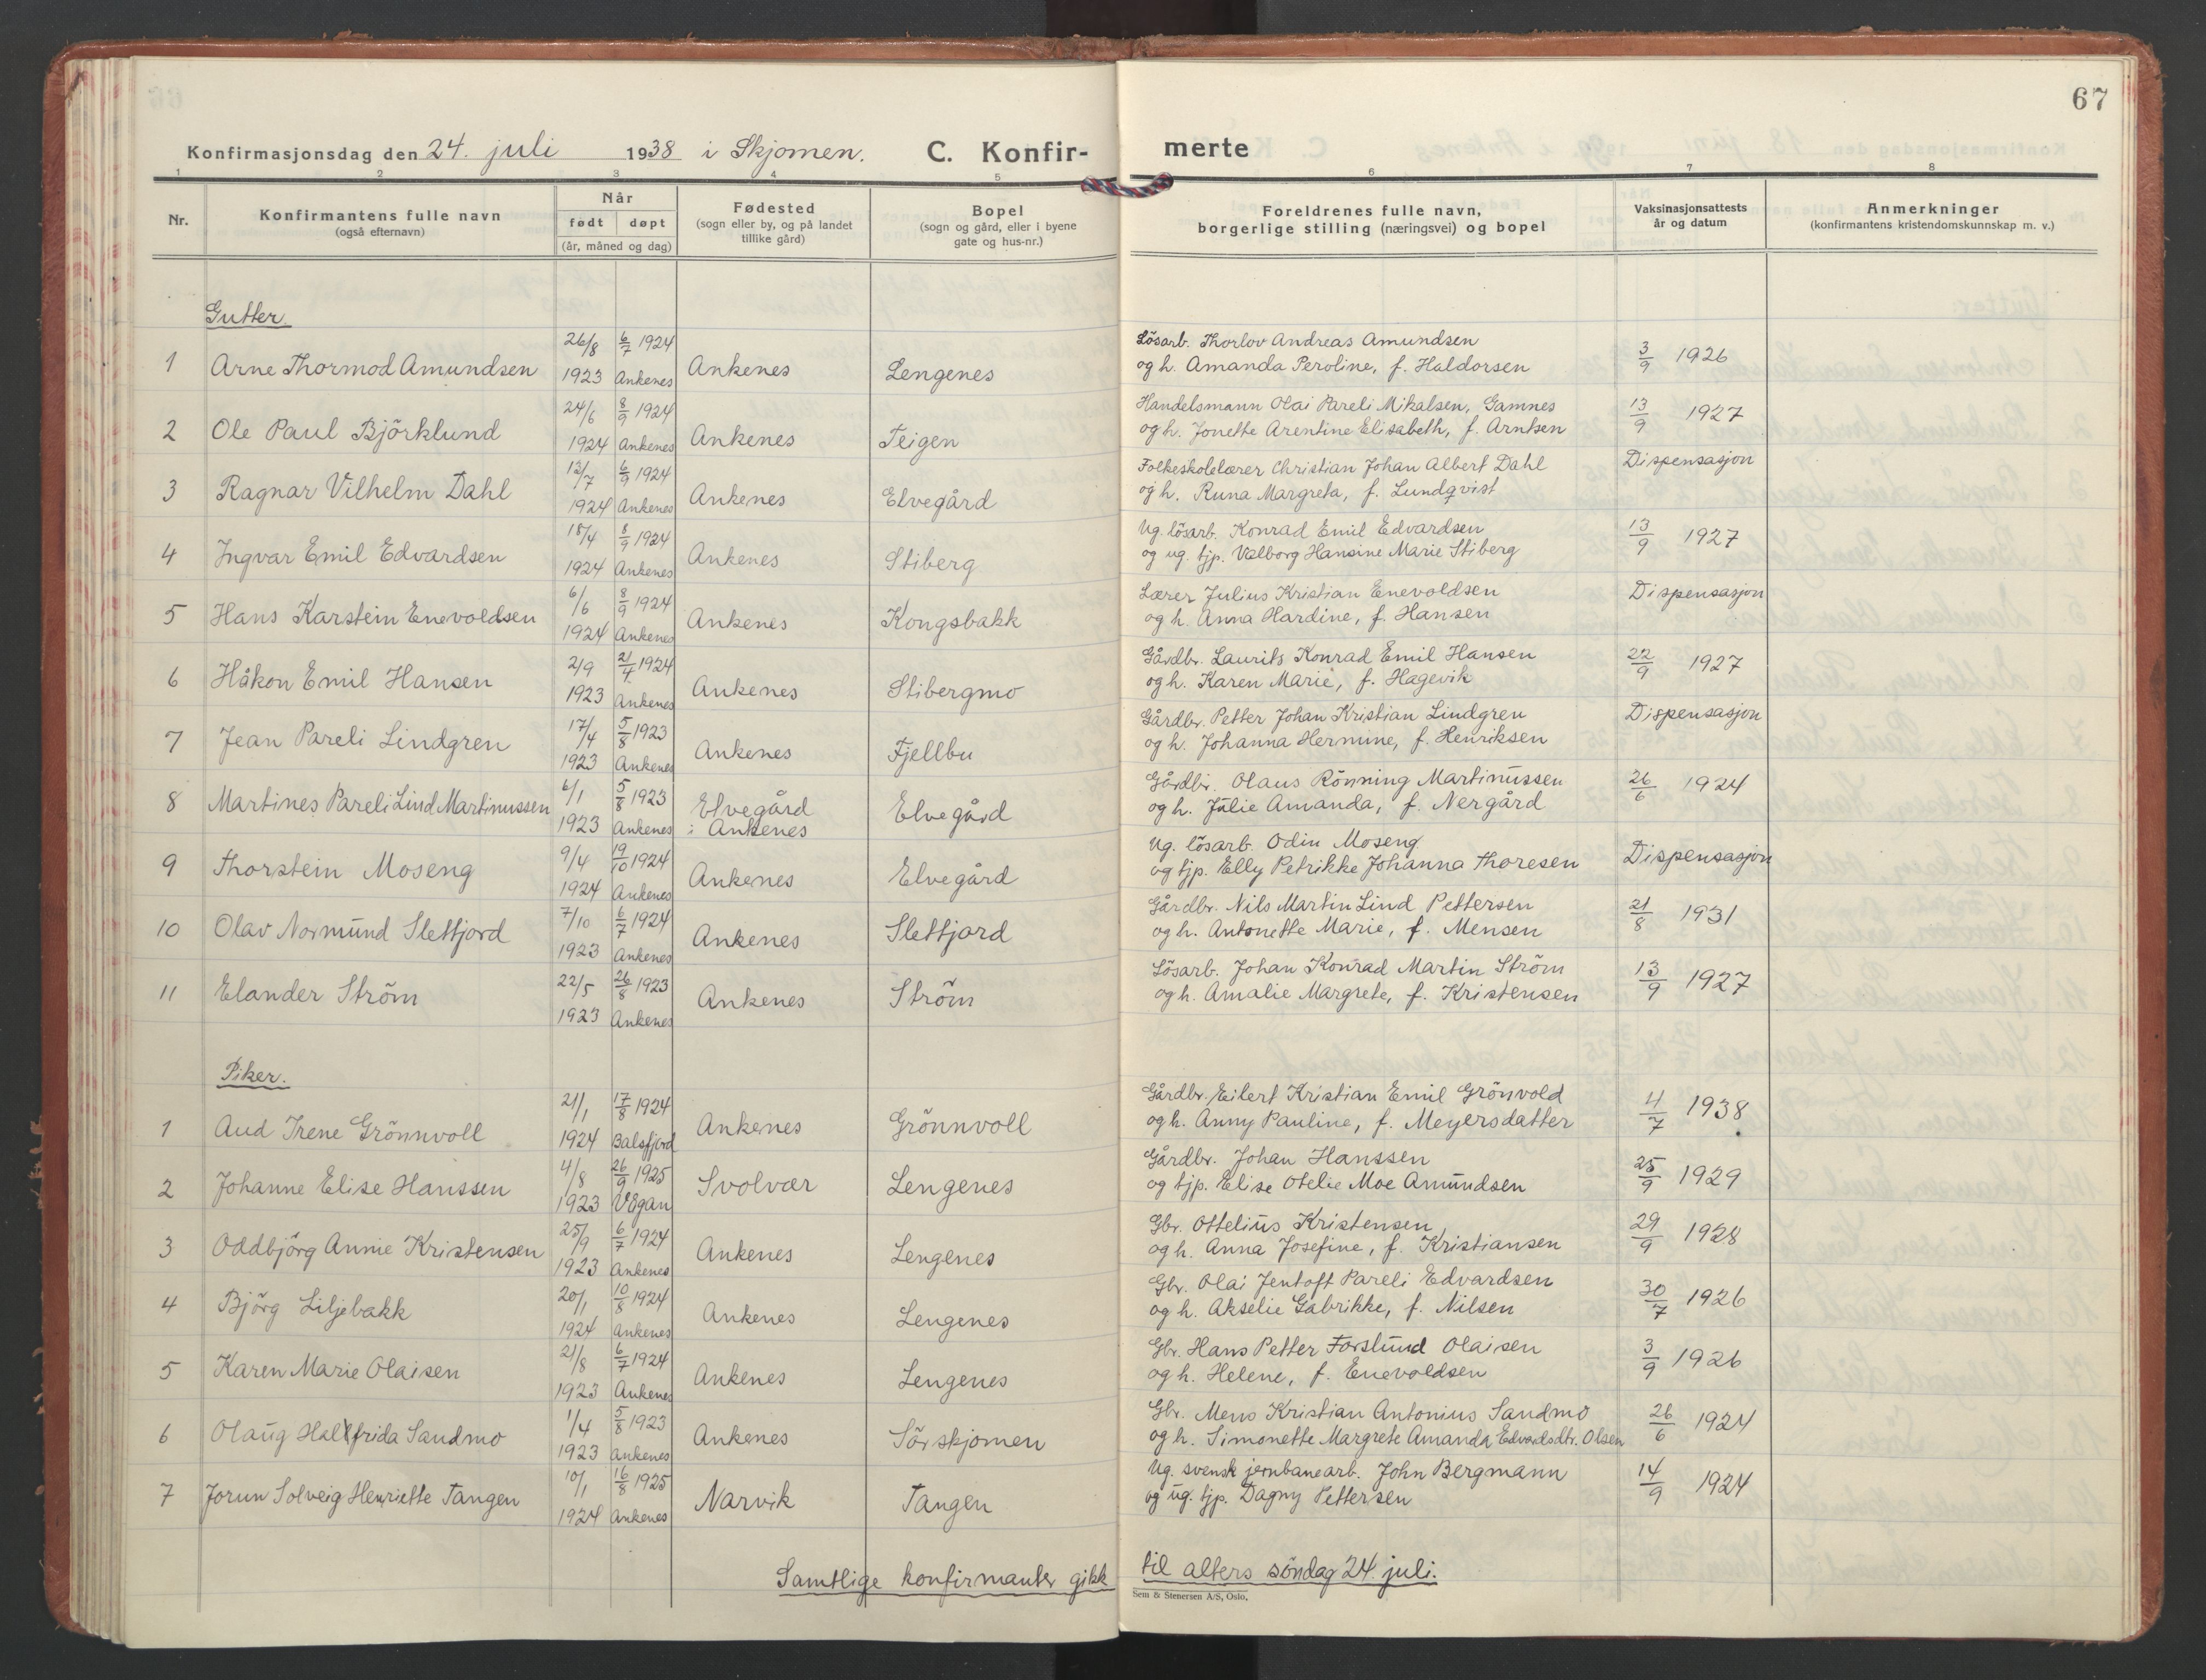 67
Konfirmasjonsdag den 24. juli 1938 i Skjomen. C. Konfir- merte
1 2 3 4 5 6 7 8
Nr. Konfirmantens fulle navn (også efternavn) Når født døpt (år, måned og dag) Fødested (sogn eller by, og på landet tillike gård) Bopel (sogn og gård, eller i byene gate og hus-nr.) Foreldrenes fulle navn, borgerlige stilling (næringsvei) og bopel Vaksinasjonsattests år og datum Anmerkninger (konfirmantens kristendomskunnskap m. v.)
Gutter.
1 Arne Thormod Amundsen 26/8 1923 6/7 1924 Ankenes Ankenes Lengenes Lösarb. Thorlov Andreas Amundsen og h. Amanda Peroline, f. Haldorsen 3/9 1926
2 Ole Paul Björklund 24/6 1924 8/9 1924 Ankenes Ankenes Teigen Handelsmann Olai Pareli Mikalsen, Gamnes og h. Jonette Arentine Elisabeth, f. Arntsen 13/9 1927
3 Ragnar Vilhelm Dahl 12/7 1924 6/9 1924 Ankenes Ankenes Elvegård Folkeskolelærer Christian Johan Albert Dahl og h. Runa Margreta, f. Lundqvist Dispensasjon
4 Ingvar Emil Edvardsen 18/4 1924 8/9 1924 Ankenes Ankenes Stiberg Ug. lösarb. Konrad Emil Edvardsen og ug. tjp. Valborg Hansine Marie Stiberg 13/9 1927
5 Hans Karstein Enevoldsen 6/6 1924 8/9 1924 Ankenes Ankenes Kongsbakk Lærer Julius Kristian Enevoldsen og h. Anna Hardine, f. Hansen Dispensasjon
6 Håkon Emil Hansen 2/9 1923 21/4 1924 Ankenes Ankenes Stibergmo Gårdbr. Laurits Konrad Emil Hansen og h. Karen Marie, f. Hagevik 22/9 1927
7 Jean Pareli Lindgren 17/4 1923 5/8 1923 Ankenes Ankenes Fjellbu Gårdbr. Petter Johan Kristian Lindgren og h. Johanna Hermine, f. Henriksen Dispensasjon
8 Martines Pareli Lind Martinussen 6/1 1923 5/8 1923 Ankenes Elvegård i Ankenes Elvegård Gårdbr. Olaus Rönning Martinussen og h. Julie Amanda, f. Nergård 26/6 1924
9 Thorstein Moseng 9/4 1924 19/10 1924 Ankenes Ankenes Elvegård Ug. lösarb. Odin Moseng og tjp. Elly Petrikke Johanna Thoresen Dispensasjon
10 Olav Normund Slettjord 7/10 1923 6/7 1924 Ankenes Ankenes Slettjord Gårdbr. Nils Martin Lind Pettersen og h. Antonette Marie, f. Mensen 21/8 1931
11 Elander Ström 22/5 1923 26/8 1923 Ankenes Ankenes Ström Lösarb. Johan Konrad Martin Ström og h. Amalie Margrete, f. Kristensen 13/9 1927
Piker.
1 Aud Irene Grönnvoll 21/1 1924 17/8 1924 Balsfjord Ankenes Grönnvoll Gårdbr. Eilert Kristian Emil Grönvold og h. Anny Pauline, f. Meyersdatter 4/7 1938
2 Johanne Elise Hanssen 4/8 1923 26/9 1925 Vågan Svolvær Lengenes Gårdbr. Johan Hanssen og tjp. Elise Otelie Moe Amundsen 25/9 1929
3 Oddbjörg Annie Kristensen 25/9 1923 6/7 1924 Ankenes Ankenes Lengenes Gbr. Ottelius Kristensen og h. Anna Josefine, f. Kristiansen 29/9 1928
4 Björg Liljebakk 20/1 1924 10/8 1924 Ankenes Ankenes Lengenes Gbr. Olai Jentoft Pareli Edvardsen og h. Akselie Gabrikke, f. Nilsen 30/7 1926
5 Karen Marie Olaisen 21/8 1923 6/7 1924 Ankenes Ankenes Lengenes Gbr. Hans Petter Forslund Olaisen og h. Helene, f. Enevoldsen 3/9 1926
6 Olaug Halfrida Sandmo 1/4 1923 5/8 1923 Ankenes Ankenes Sörskjomen Gbr. Mens Kristian Antonius Sandmo og h. Simonette Margrete Amanda Edvardsdtr. Olsen 26/6 1924
7 Jorun Solveig Henriette Tangen 10/1 1924 16/8 1925 Ankenes Narvik Tangen Ug. svensk jernbanearb. John Bergmann og ug. tjp. Dagny Pettersen 14/9 1924
Samtlige konfirmanter gikk til alters söndag 24. juli.
Sem & Stenersen A/S, Oslo.